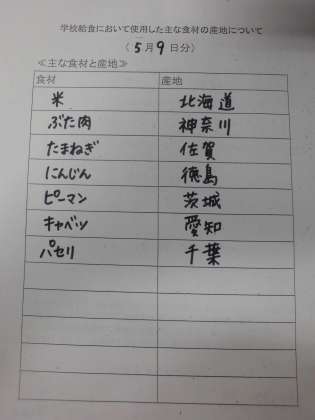 学校給食において使用した主な食材の産地について
（5月9日分）
≪主な食材と産地≫
食材 産地
米 北海道
ぶた肉 神奈川
たまねぎ 佐賀
にんじん 徳島
ピーマン 茨城
キャベツ 愛知
パセリ 千葉